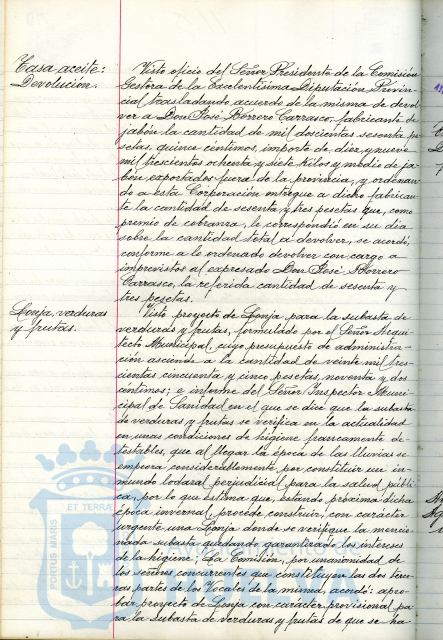 Tasa aceite:
Devolución.
Visto oficio del Señor Presidente de la Comisión
Gestora de la Excelentísima Diputación Provin-
cial trasladando acuerdo de la misma de devol-
ver a Don José Borrero Carrasco, fabricante de
jabón la cantidad de mil doscientas sesenta pe-
setas, quince céntimos, importe de diez y nueve
mil trescientos ochenta y siete kilos y medio de ja-
bón, exportados fuera de la provincia, y ordenan-
do a esta Corporación entregue a dicho fabrican-
te la cantidad de sesenta y tres pesetas que, como
premio de cobranza, le correspondió en su día
sobre la cantidad total a devolver, se acordó,
conforme a lo ordenado devolver con cargo a
imprevistos al expresado Don José Borrero
Carrasco, la referida cantidad de sesenta y
tres pesetas.
Lonja, verduras
y frutas.
Visto proyecto de Lonja para la subasta de
verduras y frutas, formulado por el Señor Arqui-
tecto Municipal, cuyo presupuesto de administra-
ción asciende a la cantidad de veinte mil tres-
cientas cincuenta y cinco pesetas, noventa y dos
céntimos; e informe del Señor Inspector Munici-
pal de Sanidad en el que se dice que la subasta
de verduras y frutas se verifica en la actualidad
en unas condiciones de higiene francamente de-
testables, que al llegar la época de las lluvias se
empeora considerablemente por constituir un in-
mundo lodazal perjudicial para la salud públi-
ca, por lo que estima que, estando próxima dicha
época invernal, procede construir, con carácter
urgente una Lonja donde se verifique la mencio-
nada subasta quedando garantizado los intereses
de la higiene; La Comisión, por unanimidad de
los señores concurrentes que constituyen las dos terce-
ras partes de los Vocales de la misma, acordó: apro-
bar proyecto de Lonja con carácter provisional pa-
ra la Subasta de verduras y frutas de que se ha
PORTUS MARIS
ET TERRA
Ayuntamiento de